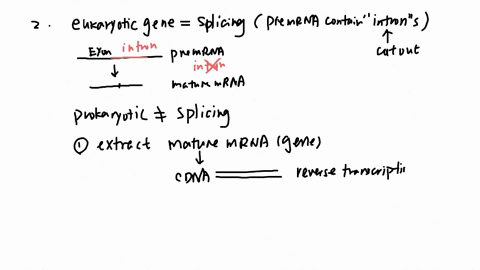 2. eukaryotic gene = splicing (premRNA contain "intron"s)
cut out
Exon intron premRNA
intron
mature mRNA
prokaryotic ≠ splicing
① extract mature mRNA (gene)
cDNA reverse transcripti